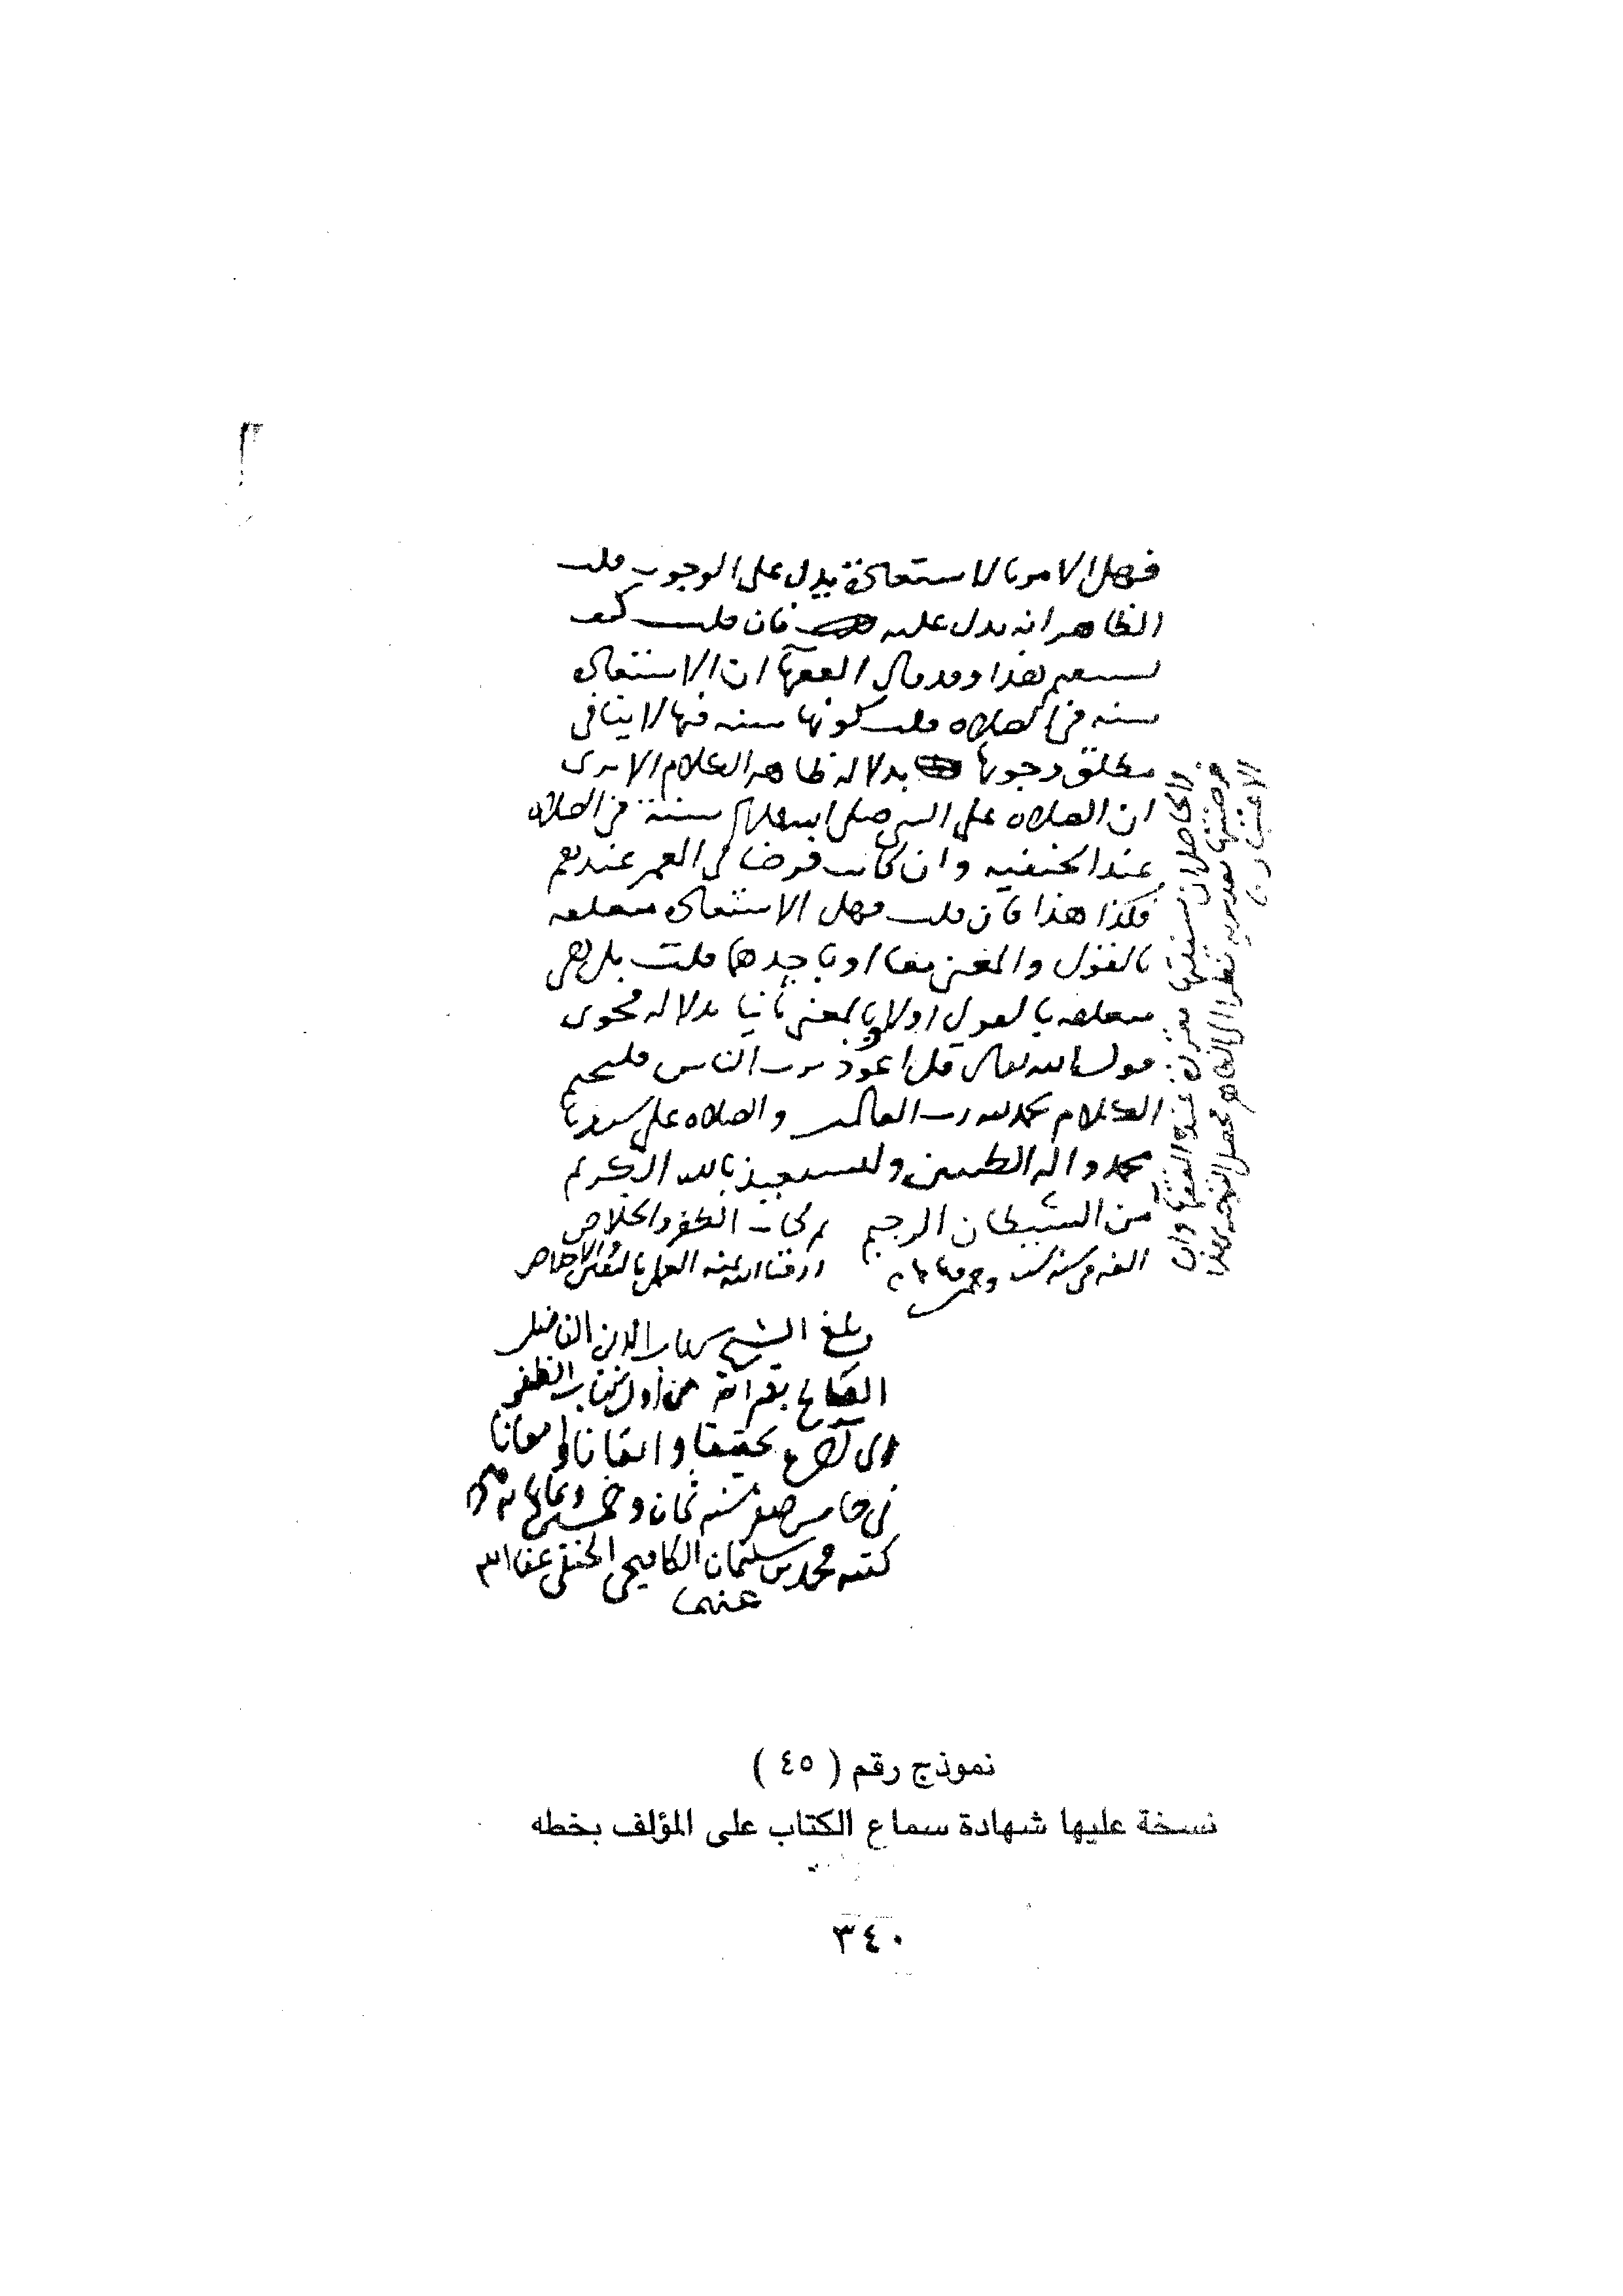 فهل الامر بالاستعاذة يدل على الوجوب قلت
الظاهر انه يدل عليه فان قلت كيف
يستقيم هذا وقد قال الفقهآ ان الاستعاذة
سنه في الصلاه قلت كونها سنه فيها لا ينافي
مطلق وجوبها بدلالة ظاهر الكلام الا يرى
ان الصلاه على النبي صلى الله عليه وسلم سنة في الصلاه
عند الحنفيه وان كانت فرضا في العمر عندهم
فكذا هذا فان قلت فهل الاستعاذة متعلقه
بالقول والمعنى معا او باحدهما قلت بل هي
متعلقه بالقول اولا وبالمعنى ثانيا بدلاله فحوى
قوله تعالى قل اعوذ برب الناس فليختم
الكلام بحمد الله رب العالمين والصلاه على سيدنا
محمد واله الطيبين وليستعيذ بالله الكريم
من الشيطان الرجيم تم كتاب الظفر والخلاص
الفه في سنه وخمسين ارزقنا الله بمنه العمل بالتقى والاخلاص
والحاصل ان سنيتها مقررة عند الفقهآ وان
فرضيتها نظرا الى الظاهر
الاعتبار
بلغ الشيخ شهاب الدين الفاضل
الصالح بقرآته من اول كتاب الظفر
الى آخره تحقيقا واتقانا وامعانا
في خامس صفر سنه ثمان وخمسين وثمانمايه
كتبه محمد بن سليمان الكافيجي الحنفي عفا الله
عنهما
نموذج رقم ( ٤٥ )
نسخة عليها شهادة سماع الكتاب على المؤلف بخطه
٣٤٠